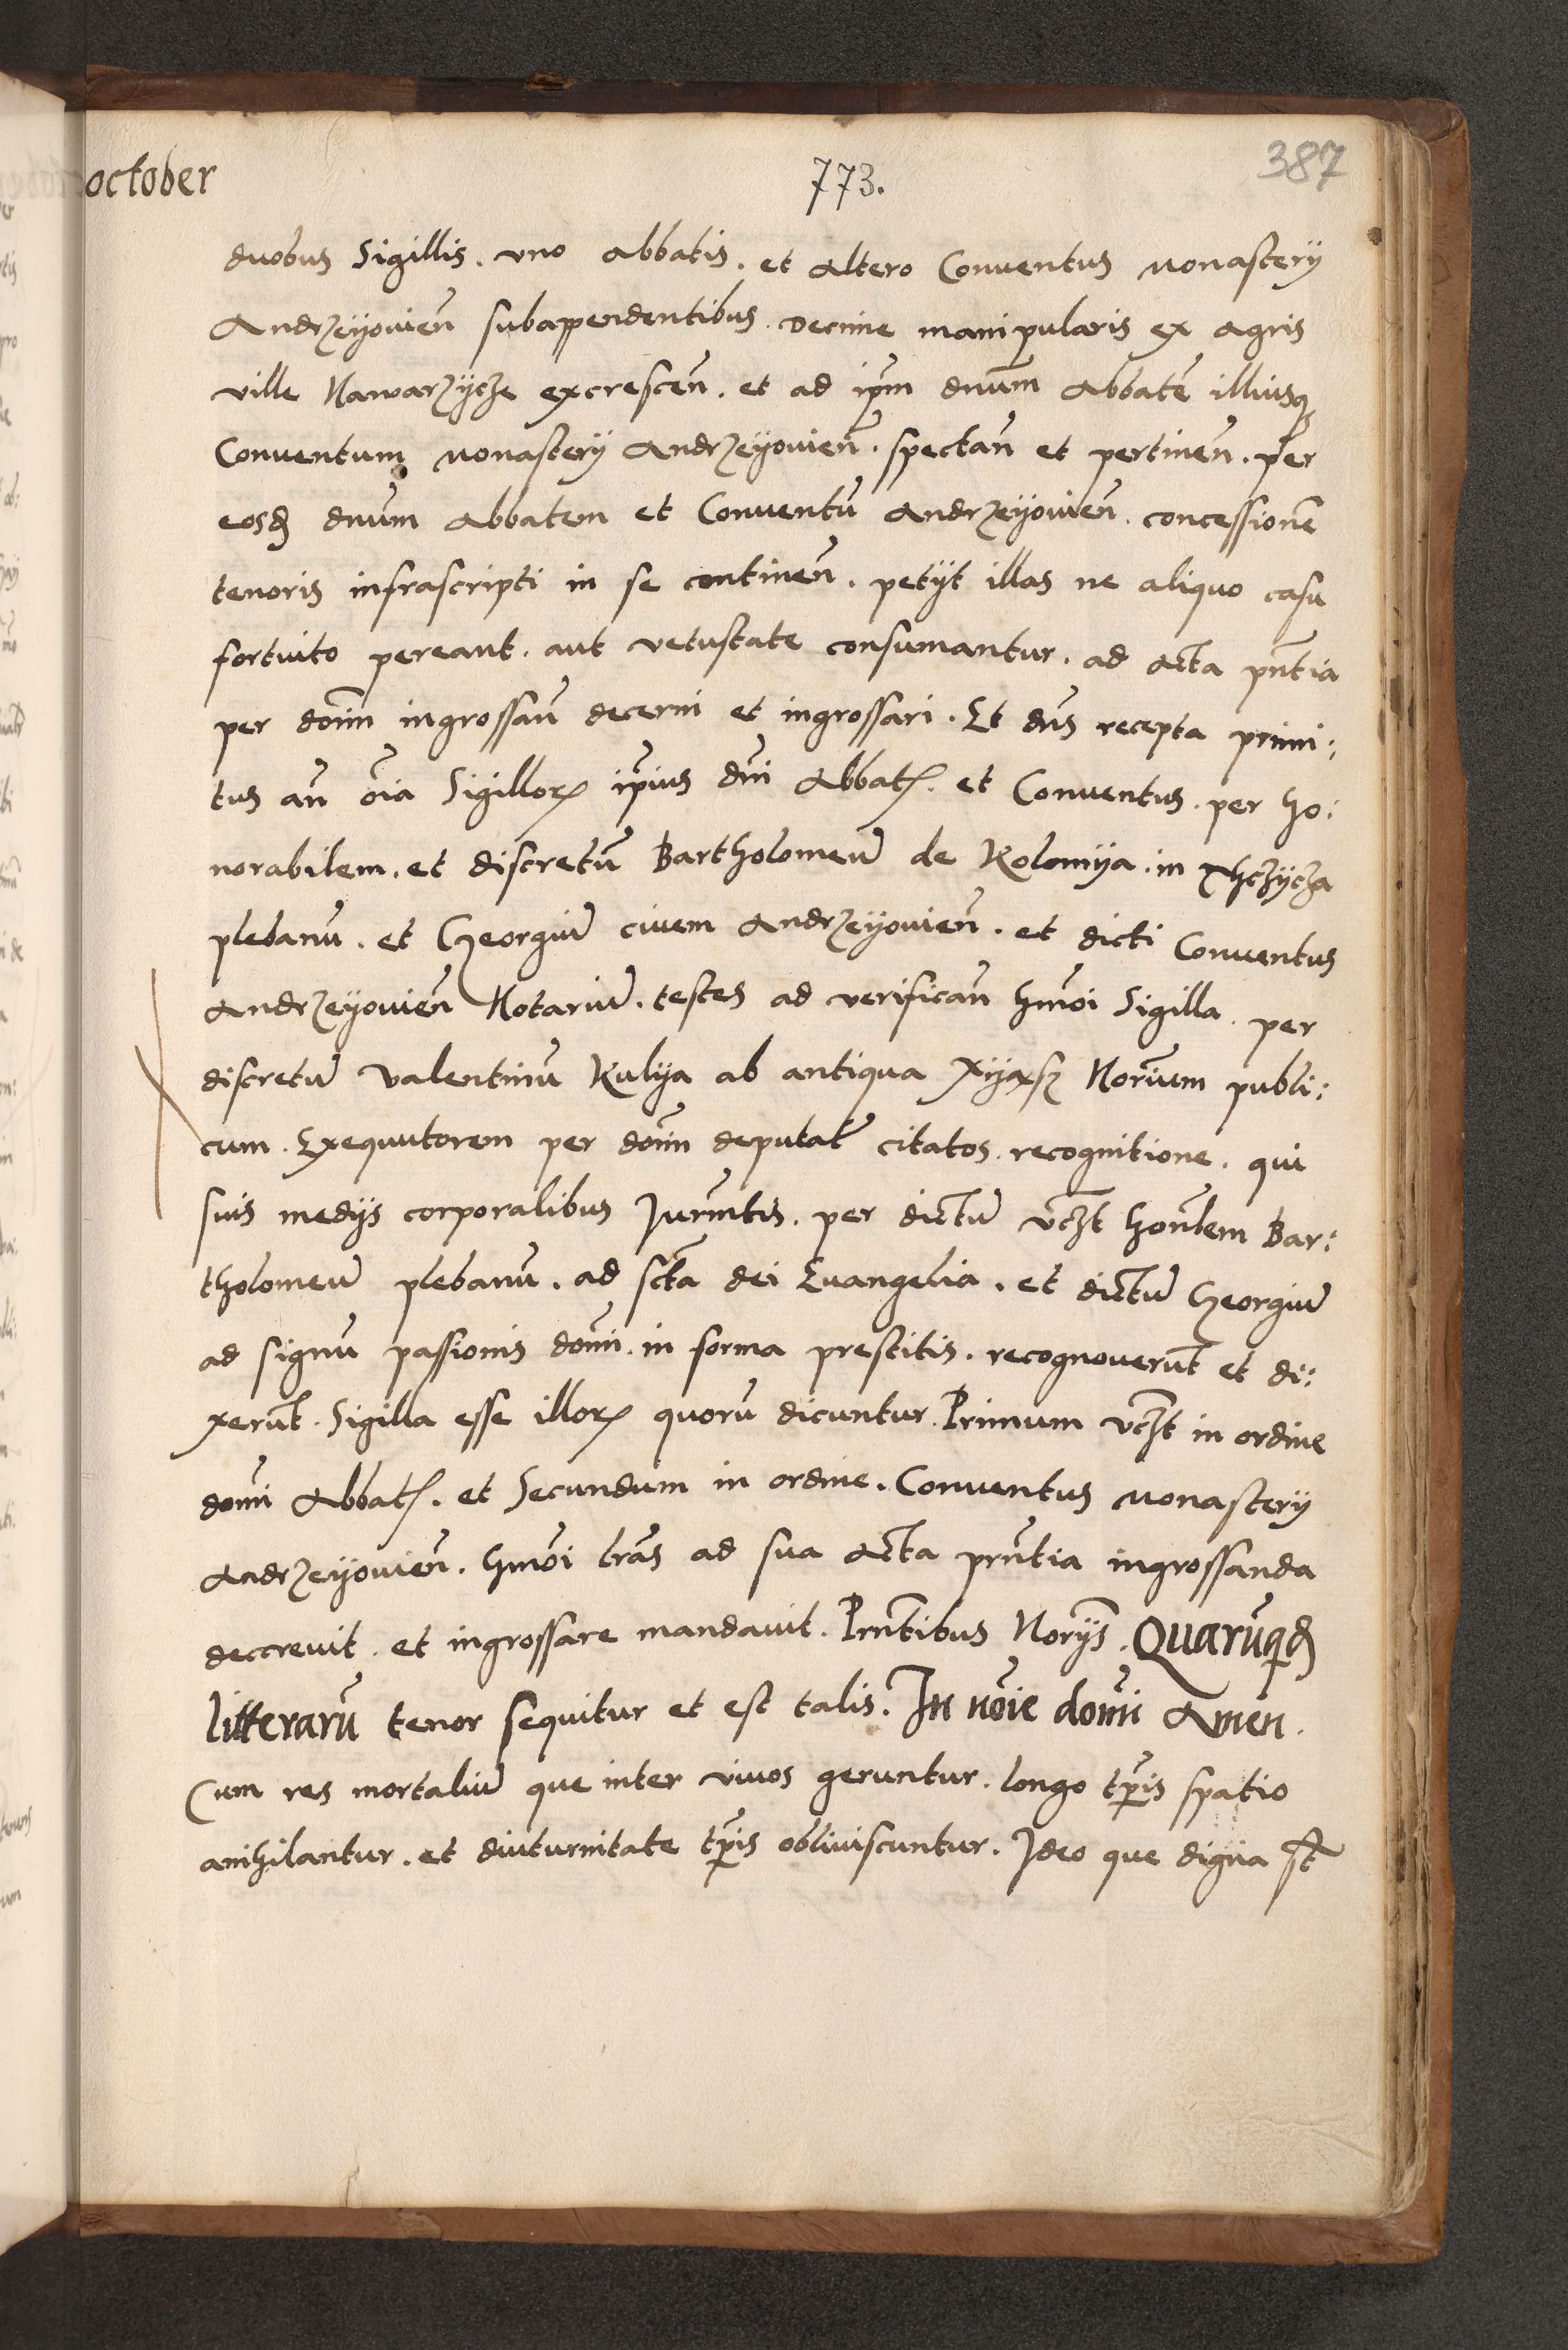 october
773.
387
duobus Sigillis. vno abbatis. et altero Conuentus monastery
Andrzeyouien̄ subappendentibus. Decime manipularis ex agris
ville Nawarzycze excrescen̄. et ad ip̄m dnūm Abbatē illiusq̨
Conuentum monastery Andrzeyouien̄. spectan̄ et pertinen̄. per
eosd̨ dnūm Abbatem et Conuentū Andrzeyouien̄. concessionē
tenoris infrascripti in se continen̄. petyt illas ne aliquo casu
fortuito pereant. aut vetustate consumantur. ad acta pn̄tia
per dom̄ ingrossan̄ decerni et ingrossari. Et dn̄s recepta primi:
tus an̄ o͞ia Sigilloꝝ ip̄ius dn̄i Abbatꝭ. et Conuentus. per ho:
norabilem. et discretū Bartholomeū de Kolomya. in
plebanū. et Georgiū ciuem Andrzeyouien̄. et dicti Conuentus
Andrzeyouien̄ Notariū. testes ad verifican̄ hmōi Sigilla. per
discretū Valentinū Kulya ab antiqua Norīum publi:
cum. Exequutorem per dom̄ deputat̄ citatos. recognitione. qui
suis medys corporalibus Jurn̄tis. per dictū vcz̄t hon̄lem Bar:
tholomeū plebanū. ad sc̄ta dei Euangelia. et dictū Georgiū
ad signū passionis dom̄i. in forma prestitis. recognouerūt et di:
xerūt. Sigilla esse illoꝝ quorū dicuntur. Primum vcz̄t in ordine
dom̄i Abbatꝭ. et Secundum in ordine. Conuentus monastery
Andrzeyouien̄. hmōi lr̄as ad sua acta prn̄tia ingrossanda
decreuit. et ingrossare mandauit. Prn̄tibus Norys̄. Quarūqd̨
litterarū tenor sequitur et est talis. In nōie dom̄i Amen̄.
Cum res mortaliū que inter viuos geruntur. longo tp̄is spatio
anihilantur. et diuturnitate tp̄is obliuiscuntur. Jdeo que digna st̄